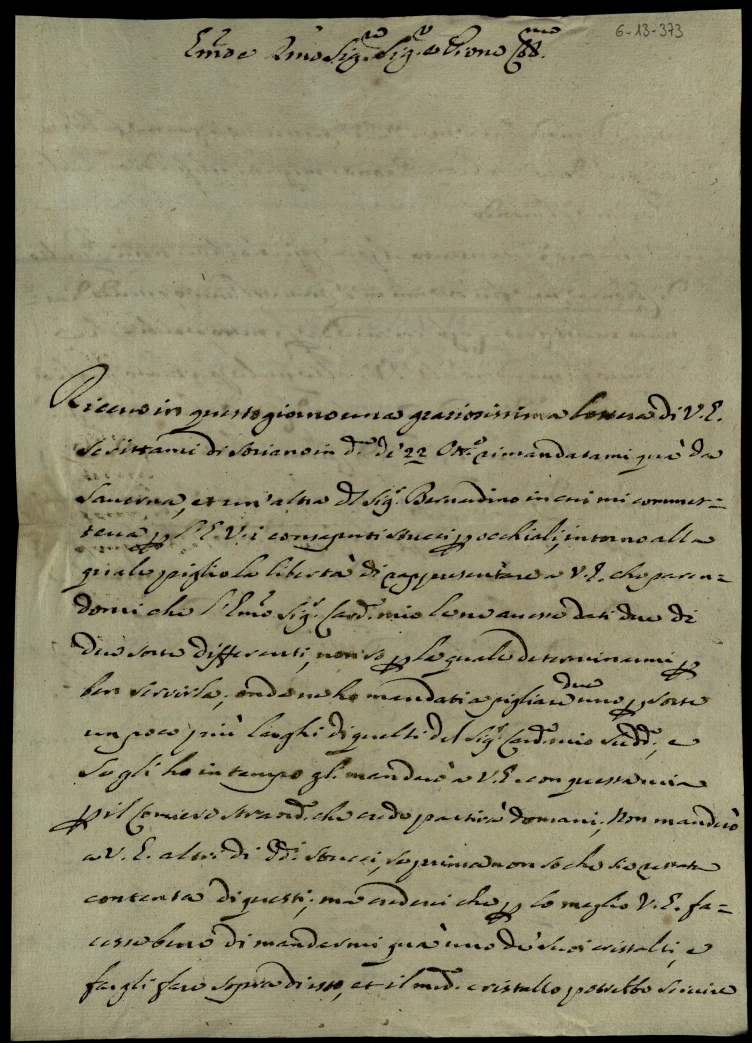 6-13-373
Em.o e R.mo Sig.re Sig.r e Pron Col.mo
Ricevo in questo giorno una graziosissima lettera di V. E.
scrittami di Soriano in d.a de 22 Ott.e rimandatami quà da
et un'altra del Sig.r Bernardino in cui mi commet=
teva p l'E. V. i consaputi stucci p occhiali, intorno alla
quale piglio la libertà di rappresentare a V. E. che paren=
domi che l'Em.o Sig.r Card. mio le ne avesse dati due di
due sorte differenti, non so p la quale determinarmi p
ben servirla, onde ne ho mandati a pigliare due uno p sorte
un poco più larghi di quelli del Sig.r Card. mio Sud.o, e
se gli ho in tempo gli manderò a V. E. con questa mia
p il Corriere straord. che credo partirà domani; Non manderò
a V. E. altri di d.i stucci, se prima non so che sia restata
contenta di questi; ma crederei che p lo meglio V. E. fa=
cesse bene di mandarmi quà uno de suoi cristalli, e
fargli fare sopra di esso, et il med.o cristallo potrebbe servire